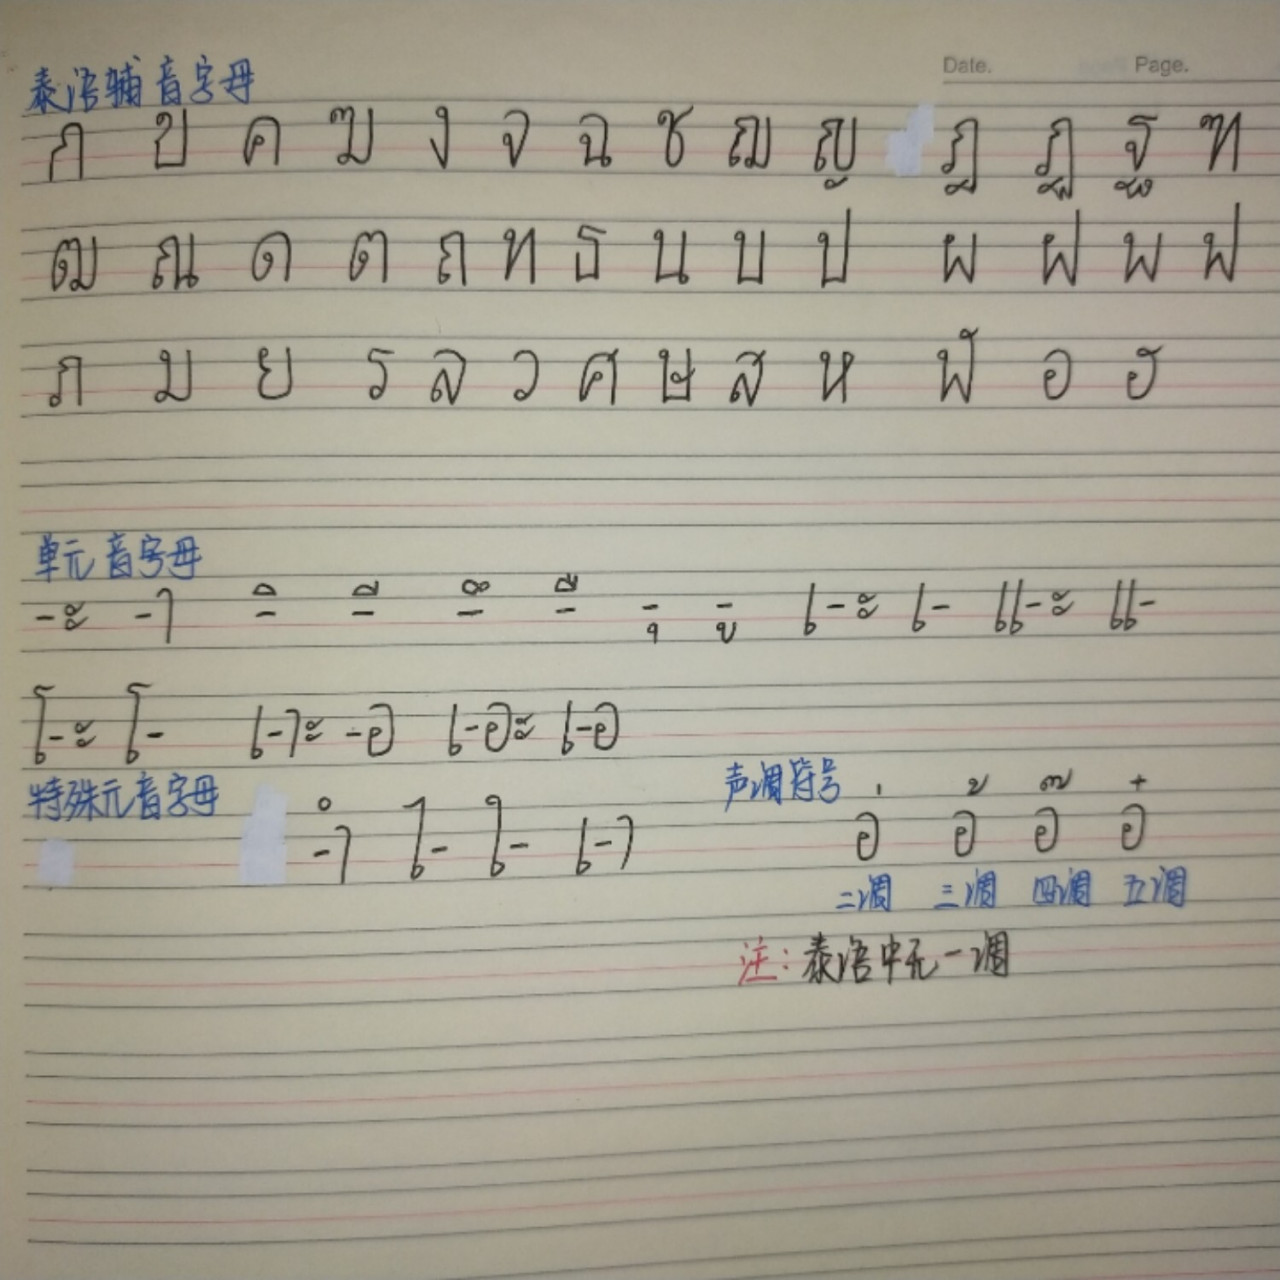 Date. Page.
泰语辅音字母
ก ข ค ฆ ง จ ฉ ช ฌ ญ ฎ ฏ ฐ ฑ
ฒ ณ ด ต ถ ท ธ น บ ป ผ ฝ พ ฟ
ภ ม ย ร ล ว ศ ษ ส ห ฬ อ ฮ
单元音字母
-ะ -า -ิ -ี -ึ -ื -ุ -ู เ-ะ เ- แ-ะ แ-
โ-ะ โ- เ-าะ -อ เ-อะ เ-อ
特殊元音字母 -ำ ไ- ใ- เ-า
声调符号 อ่ อ้ อ๊ อ๋
二调 三调 四调 五调
注：泰语中无一调